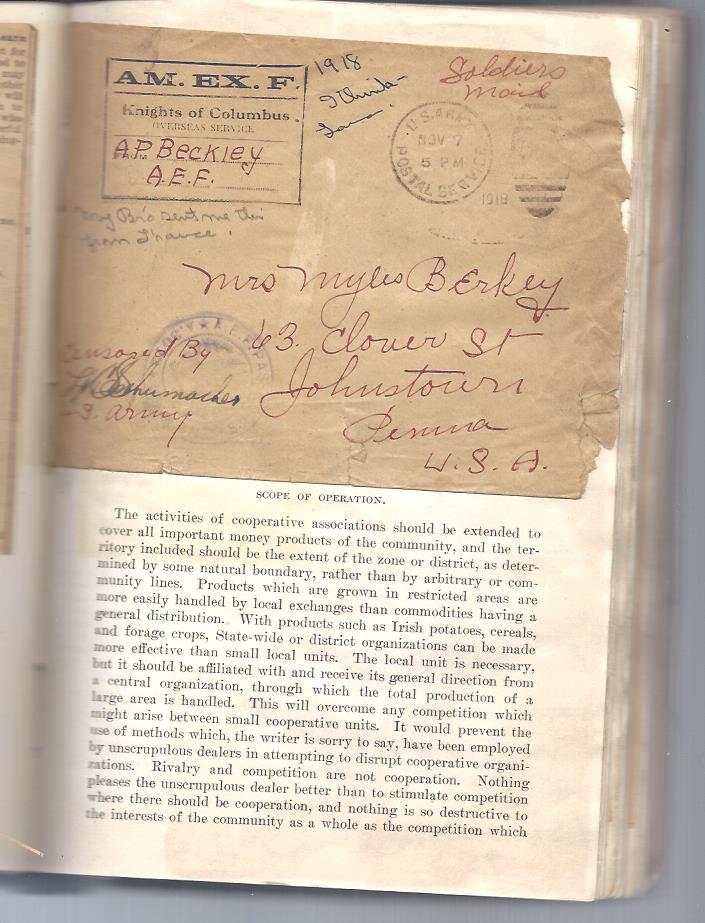 AM. EX. F.
Knights of Columbus
OVERSEAS SERVICE
FROM A.P. Beckley
A.E.F.
1918
I think
Soldiers
Mail
U.S. ARMY
NOV 7
5 PM
POSTAL SERVICE
1918
My Bro sent me this
from France.
Mrs Myles Berkey
63. Clover St
Johnstown
Penna
U.S.A.
Censored By
Schumacher
Army
A.E.F.
SCOPE OF OPERATION.
The activities of cooperative associations should be extended to
cover all important money products of the community, and the ter-
ritory included should be the extent of the zone or district, as deter-
mined by some natural boundary, rather than by arbitrary or com-
munity lines. Products which are grown in restricted areas are
more easily handled by local exchanges than commodities having a
general distribution. With products such as Irish potatoes, cereals,
and forage crops, State-wide or district organizations can be made
more effective than small local units. The local unit is necessary,
but it should be affiliated with and receive its general direction from
a central organization, through which the total production of a
large area is handled. This will overcome any competition which
might arise between small cooperative units. It would prevent the
use of methods which, the writer is sorry to say, have been employed
by unscrupulous dealers in attempting to disrupt cooperative organi-
zations. Rivalry and competition are not cooperation. Nothing
pleases the unscrupulous dealer better than to stimulate competition
where there should be cooperation, and nothing is so destructive to
the interests of the community as a whole as the competition which